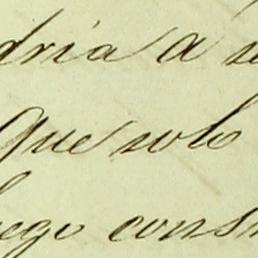 dria á s
que solo
uego cons